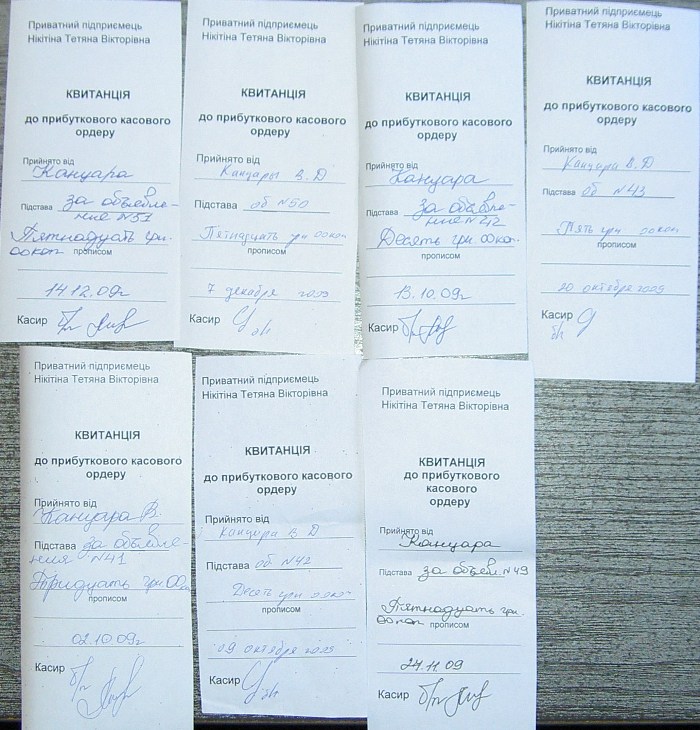 Приватний підприємець
Нікітіна Тетяна Вікторівна
КВИТАНЦІЯ
до прибуткового касового
ордеру
Прийнято від
Канцара
Підстава за объявле-
ние N51
Пятнадцать грн.
00коп прописом
14.12.09г
Касир б/п
Приватний підприємець
Нікітіна Тетяна Вікторівна
КВИТАНЦІЯ
до прибуткового касового
ордеру
Прийнято від
Канцары В.Д
Підстава об N50
Пятнадцать грн 00коп
прописом
7 декабря 2009
Касир
Приватний підприємець
Нікітіна Тетяна Вікторівна
КВИТАНЦІЯ
до прибуткового касового
ордеру
Прийнято від
Канцара
Підстава за объявле-
ние N42
Десять грн 00коп.
прописом
13.10.09г
Касир б/п
Приватний підприємець
Нікітіна Тетяна Вікторівна
КВИТАНЦІЯ
до прибуткового касового
ордеру
Прийнято від
Канцара В.Д
Підстава об N43
Пять грн 00коп
прописом
20 октября 2009
Касир
Приватний підприємець
Нікітіна Тетяна Вікторівна
КВИТАНЦІЯ
до прибуткового касового
ордеру
Прийнято від
Канцара В.
Підстава за объявле-
ния N41
Тридцать грн 00к
прописом
02.10.09г
Касир б/п
Приватний підприємець
Нікітіна Тетяна Вікторівна
КВИТАНЦІЯ
до прибуткового касового
ордеру
Прийнято від
Канцара В Д
Підстава об N42
Десять грн 00коп
прописом
09 октября 2009
Касир
Приватний підприємець
Нікітіна Тетяна Вікторівна
КВИТАНЦІЯ
до прибуткового
касового
ордеру
Прийнято від
Канцара
Підстава за объявл. N49
Пятнадцать грн.
00коп прописом
24.11.09
Касир б/п